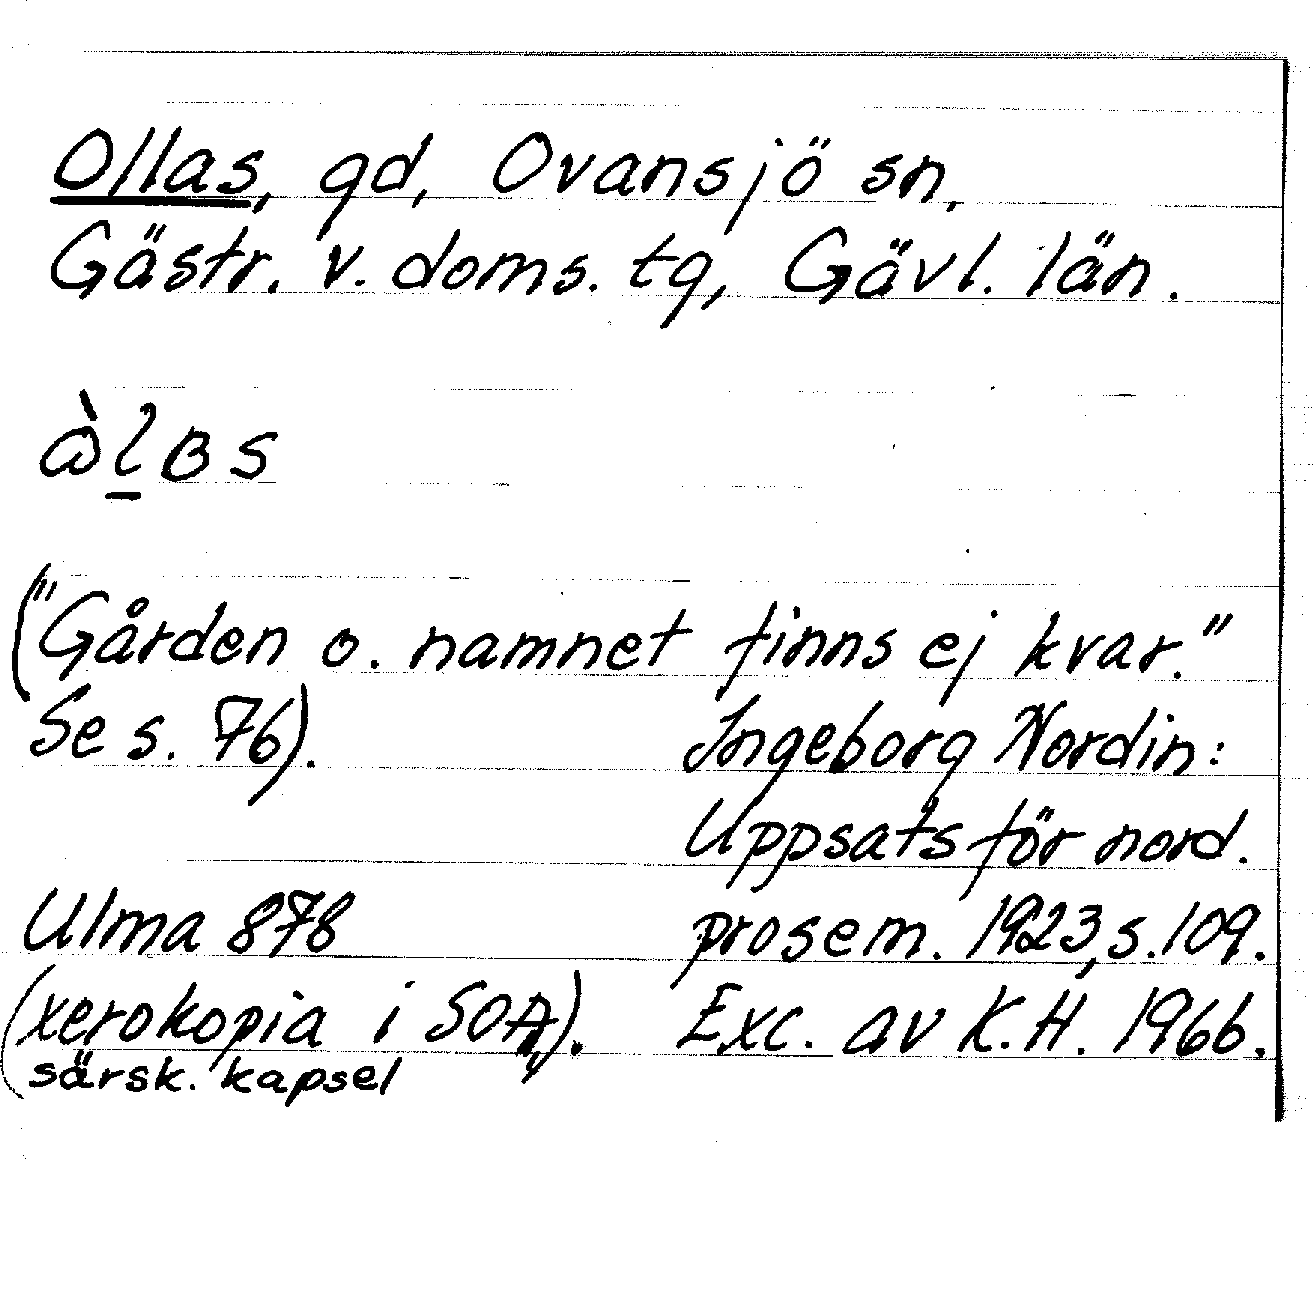 Ollas, gd, Ovansjö sn,
Gästr. v. doms. tg, Gävl. län.
ὼl̲ʙs
("Gården o. namnet finns ej kvar."
Se s. 76).
Ingeborg Nordin:
Uppsats för nord.
prosem. 1923, s. 109.
Exc. av K. H. 1966.
Ulma 878
(xerokopia i SOA,).
särsk. kapsel